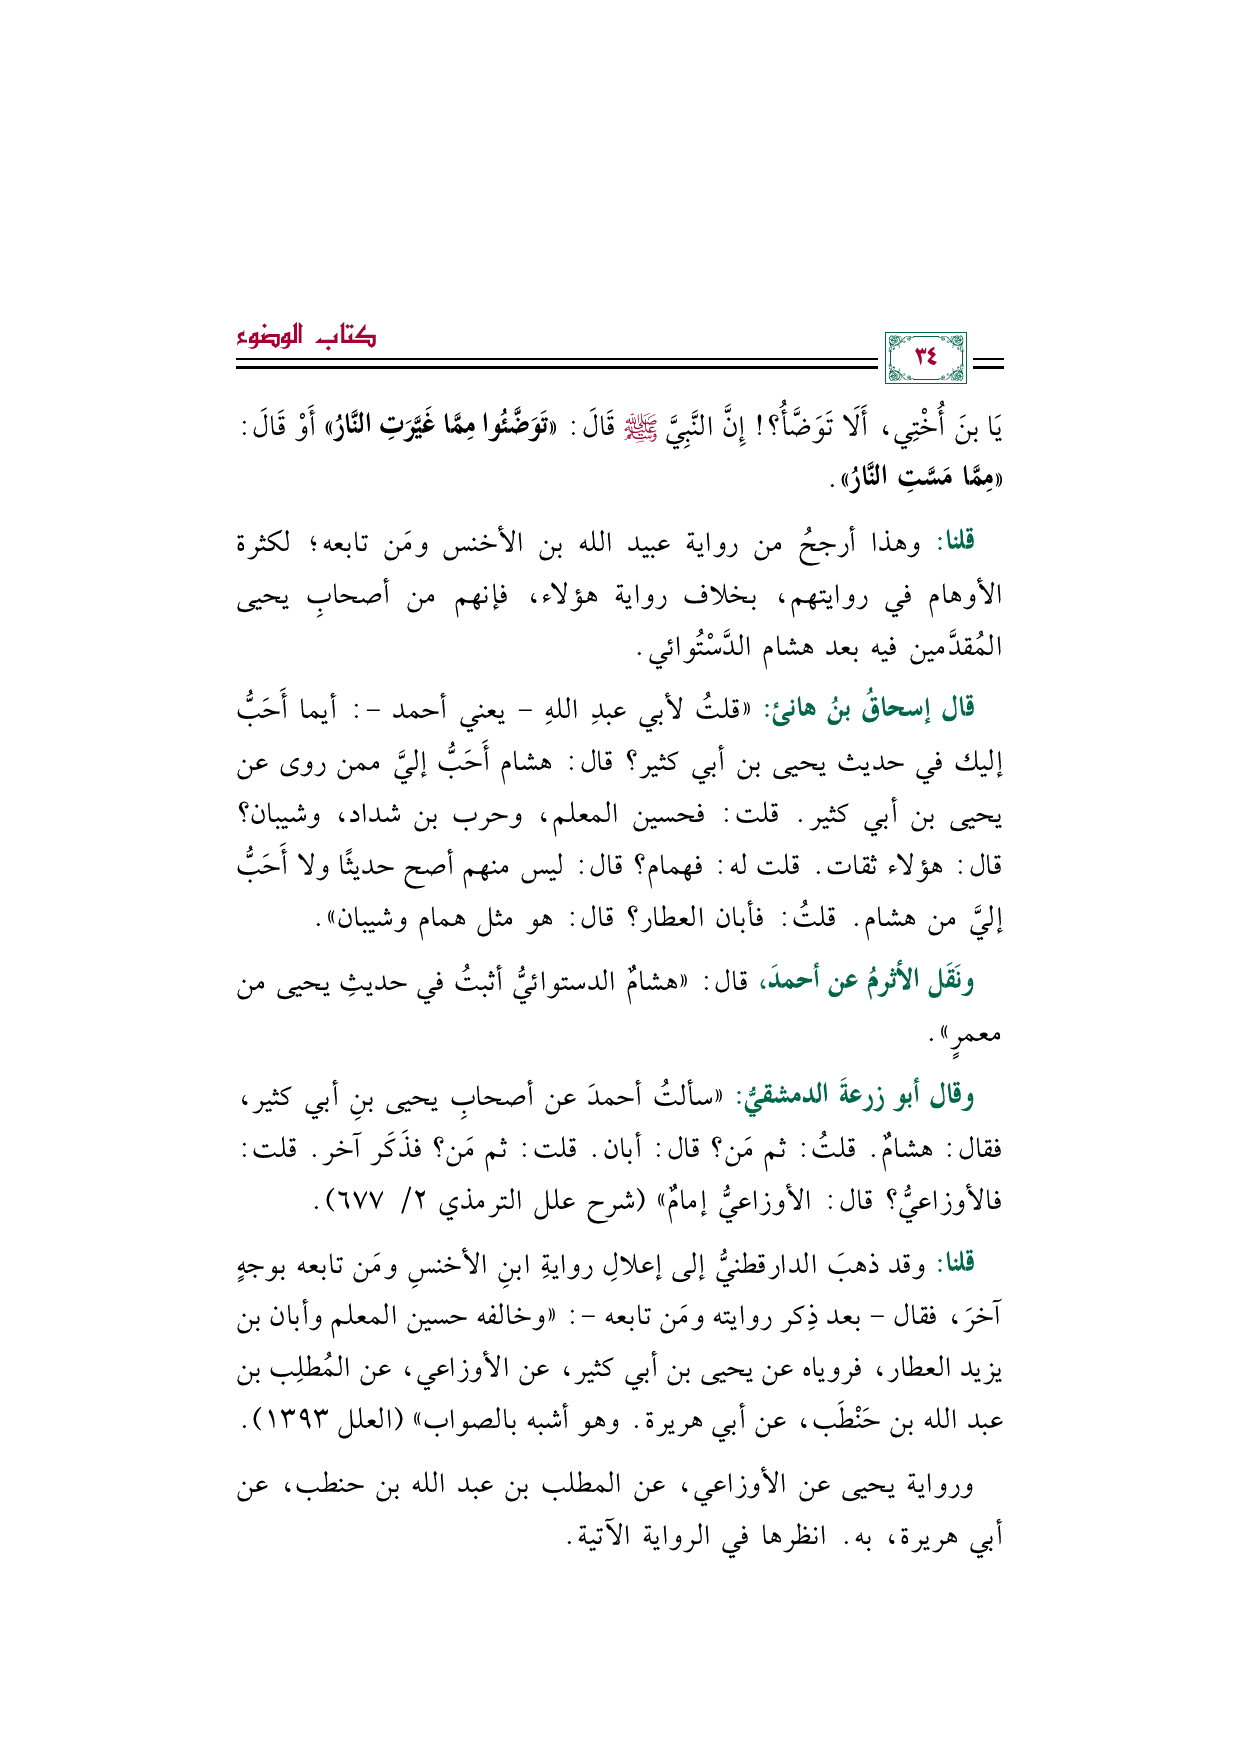 كتاب الوضوء
٣٤
يَا بنَ أُخْتِي، أَلَا تَوَضَّأُ؟! إِنَّ النَّبِيَّ ﷺ قَالَ: «تَوَضَّئُوا مِمَّا غَيَّرَتِ النَّارُ» أَوْ قَالَ:
«مِمَّا مَسَّتِ النَّارُ».
قلنا: وهذا أرجحُ من رواية عبيد الله بن الأخنس ومَن تابعه؛ لكثرة
الأوهام في روايتهم، بخلاف رواية هؤلاء، فإنهم من أصحابِ يحيى
المُقدَّمين فيه بعد هشام الدَّسْتُوائي.
قال إسحاقُ بنُ هانئ: «قلتُ لأبي عبدِ اللهِ – يعني أحمد –: أيما أَحَبُّ
إليك في حديث يحيى بن أبي كثير؟ قال: هشام أَحَبُّ إليَّ ممن روى عن
يحيى بن أبي كثير. قلت: فحسين المعلم، وحرب بن شداد، وشيبان؟
قال: هؤلاء ثقات. قلت له: فهمام؟ قال: ليس منهم أصح حديثًا ولا أَحَبُّ
إليَّ من هشام. قلتُ: فأبان العطار؟ قال: هو مثل همام وشيبان».
ونَقَل الأثرمُ عن أحمدَ، قال: «هشامٌ الدستوائيُّ أثبتُ في حديثِ يحيى من
معمرٍ».
وقال أبو زرعةَ الدمشقيُّ: «سألتُ أحمدَ عن أصحابِ يحيى بنِ أبي كثير،
فقال: هشامٌ. قلتُ: ثم مَن؟ قال: أبان. قلت: ثم مَن؟ فذَكَر آخر. قلت:
فالأوزاعيُّ؟ قال: الأوزاعيُّ إمامٌ» (شرح علل الترمذي ٢/ ٦٧٧).
قلنا: وقد ذهبَ الدارقطنيُّ إلى إعلالِ روايةِ ابنِ الأخنسِ ومَن تابعه بوجهٍ
آخرَ، فقال – بعد ذِكر روايته ومَن تابعه –: «وخالفه حسين المعلم وأبان بن
يزيد العطار، فروياه عن يحيى بن أبي كثير، عن الأوزاعي، عن المُطلِب بن
عبد الله بن حَنْطَب، عن أبي هريرة. وهو أشبه بالصواب» (العلل ١٣٩٣).
ورواية يحيى عن الأوزاعي، عن المطلب بن عبد الله بن حنطب، عن
أبي هريرة، به. انظرها في الرواية الآتية.